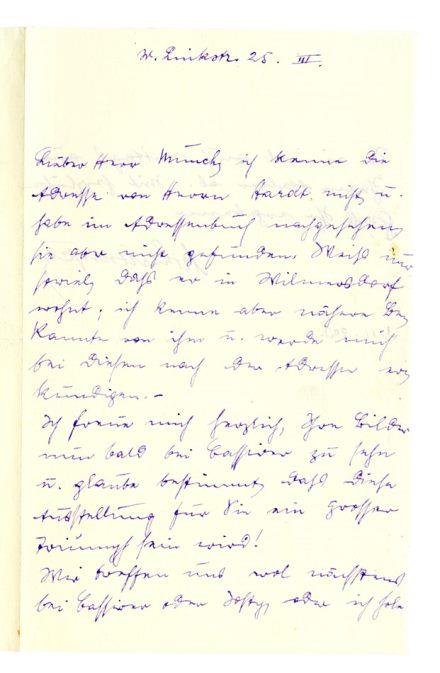 W. Linkstr. 25. III.
Lieber Herr Munch, ich kenne die
Adresse von Herrn Hardt nicht u.
habe im Adressenbuch nachgesehen,
sie aber nicht gefunden. Weiss nur
soviel, dass er in Wilmersdorf
wohnt; ich kenne aber nähere Be-
kannte von ihm u. werde mich
bei diesen nach der Adresse er-
kundigen. –
Ich freue mich herzlich, Ihre Bilder
nun bald bei Cassirer zu sehn
u. glaube bestimmt, dass diese
Ausstellung für Sie ein grosser
Triumph sein wird!
Wir treffen uns wol nächstens
bei Cassirer oder Josty, oder ich hole